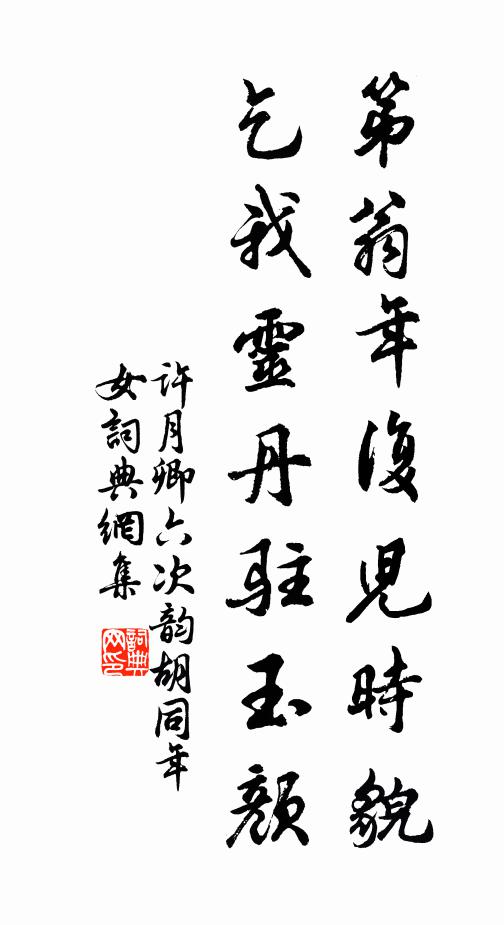 第翁年復児時貌
乞我靈丹駐玉顔
許月卿六次韵胡同年
女詞典網集
詞典网印